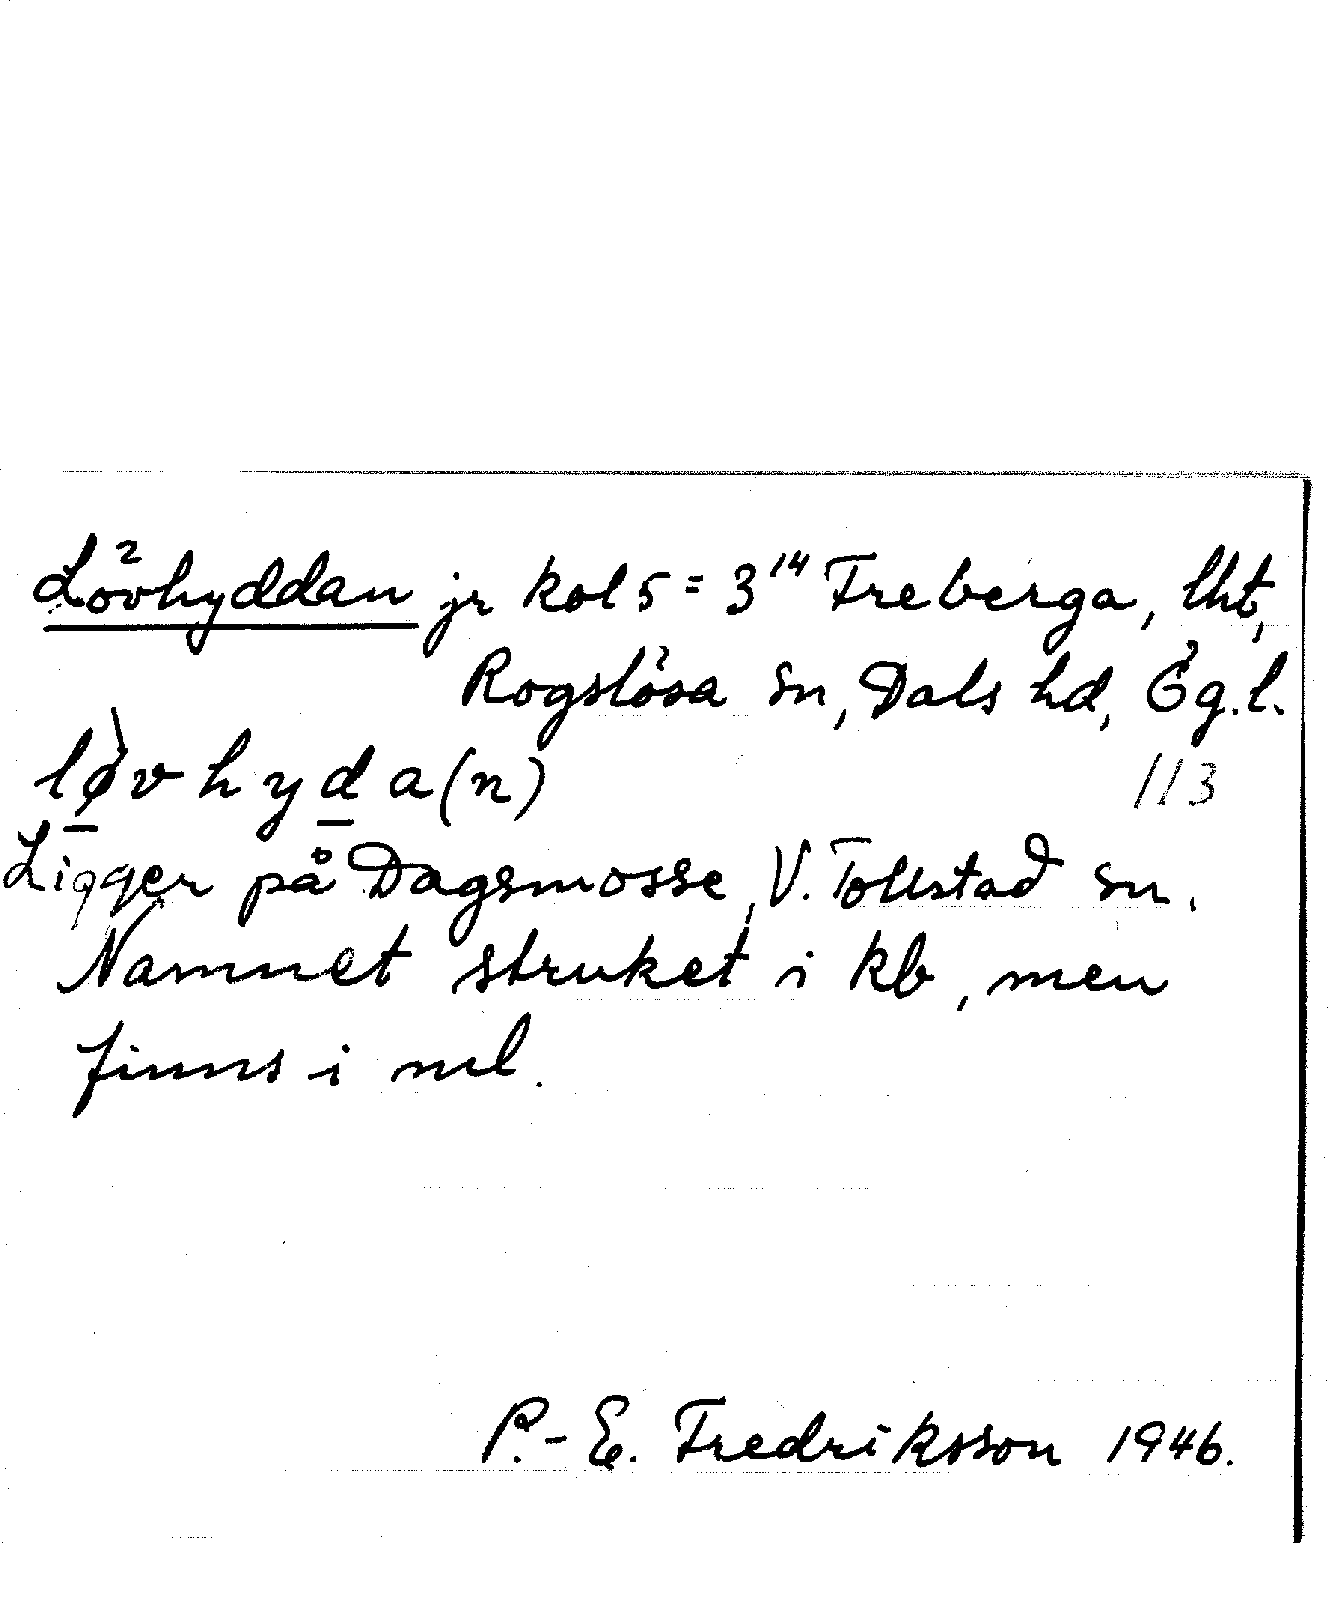 Lövhyddan jr kol 5 = 3¹⁴ Freberga, lht,
Rogslösa sn, Dals hd, Ög.l.
lø̀vhyda(n)
113
Ligger på Dagsmosse, V. Tollstad sn.
Namnet struket i kb, men
finns i ml.
P.-E. Fredriksson 1946.